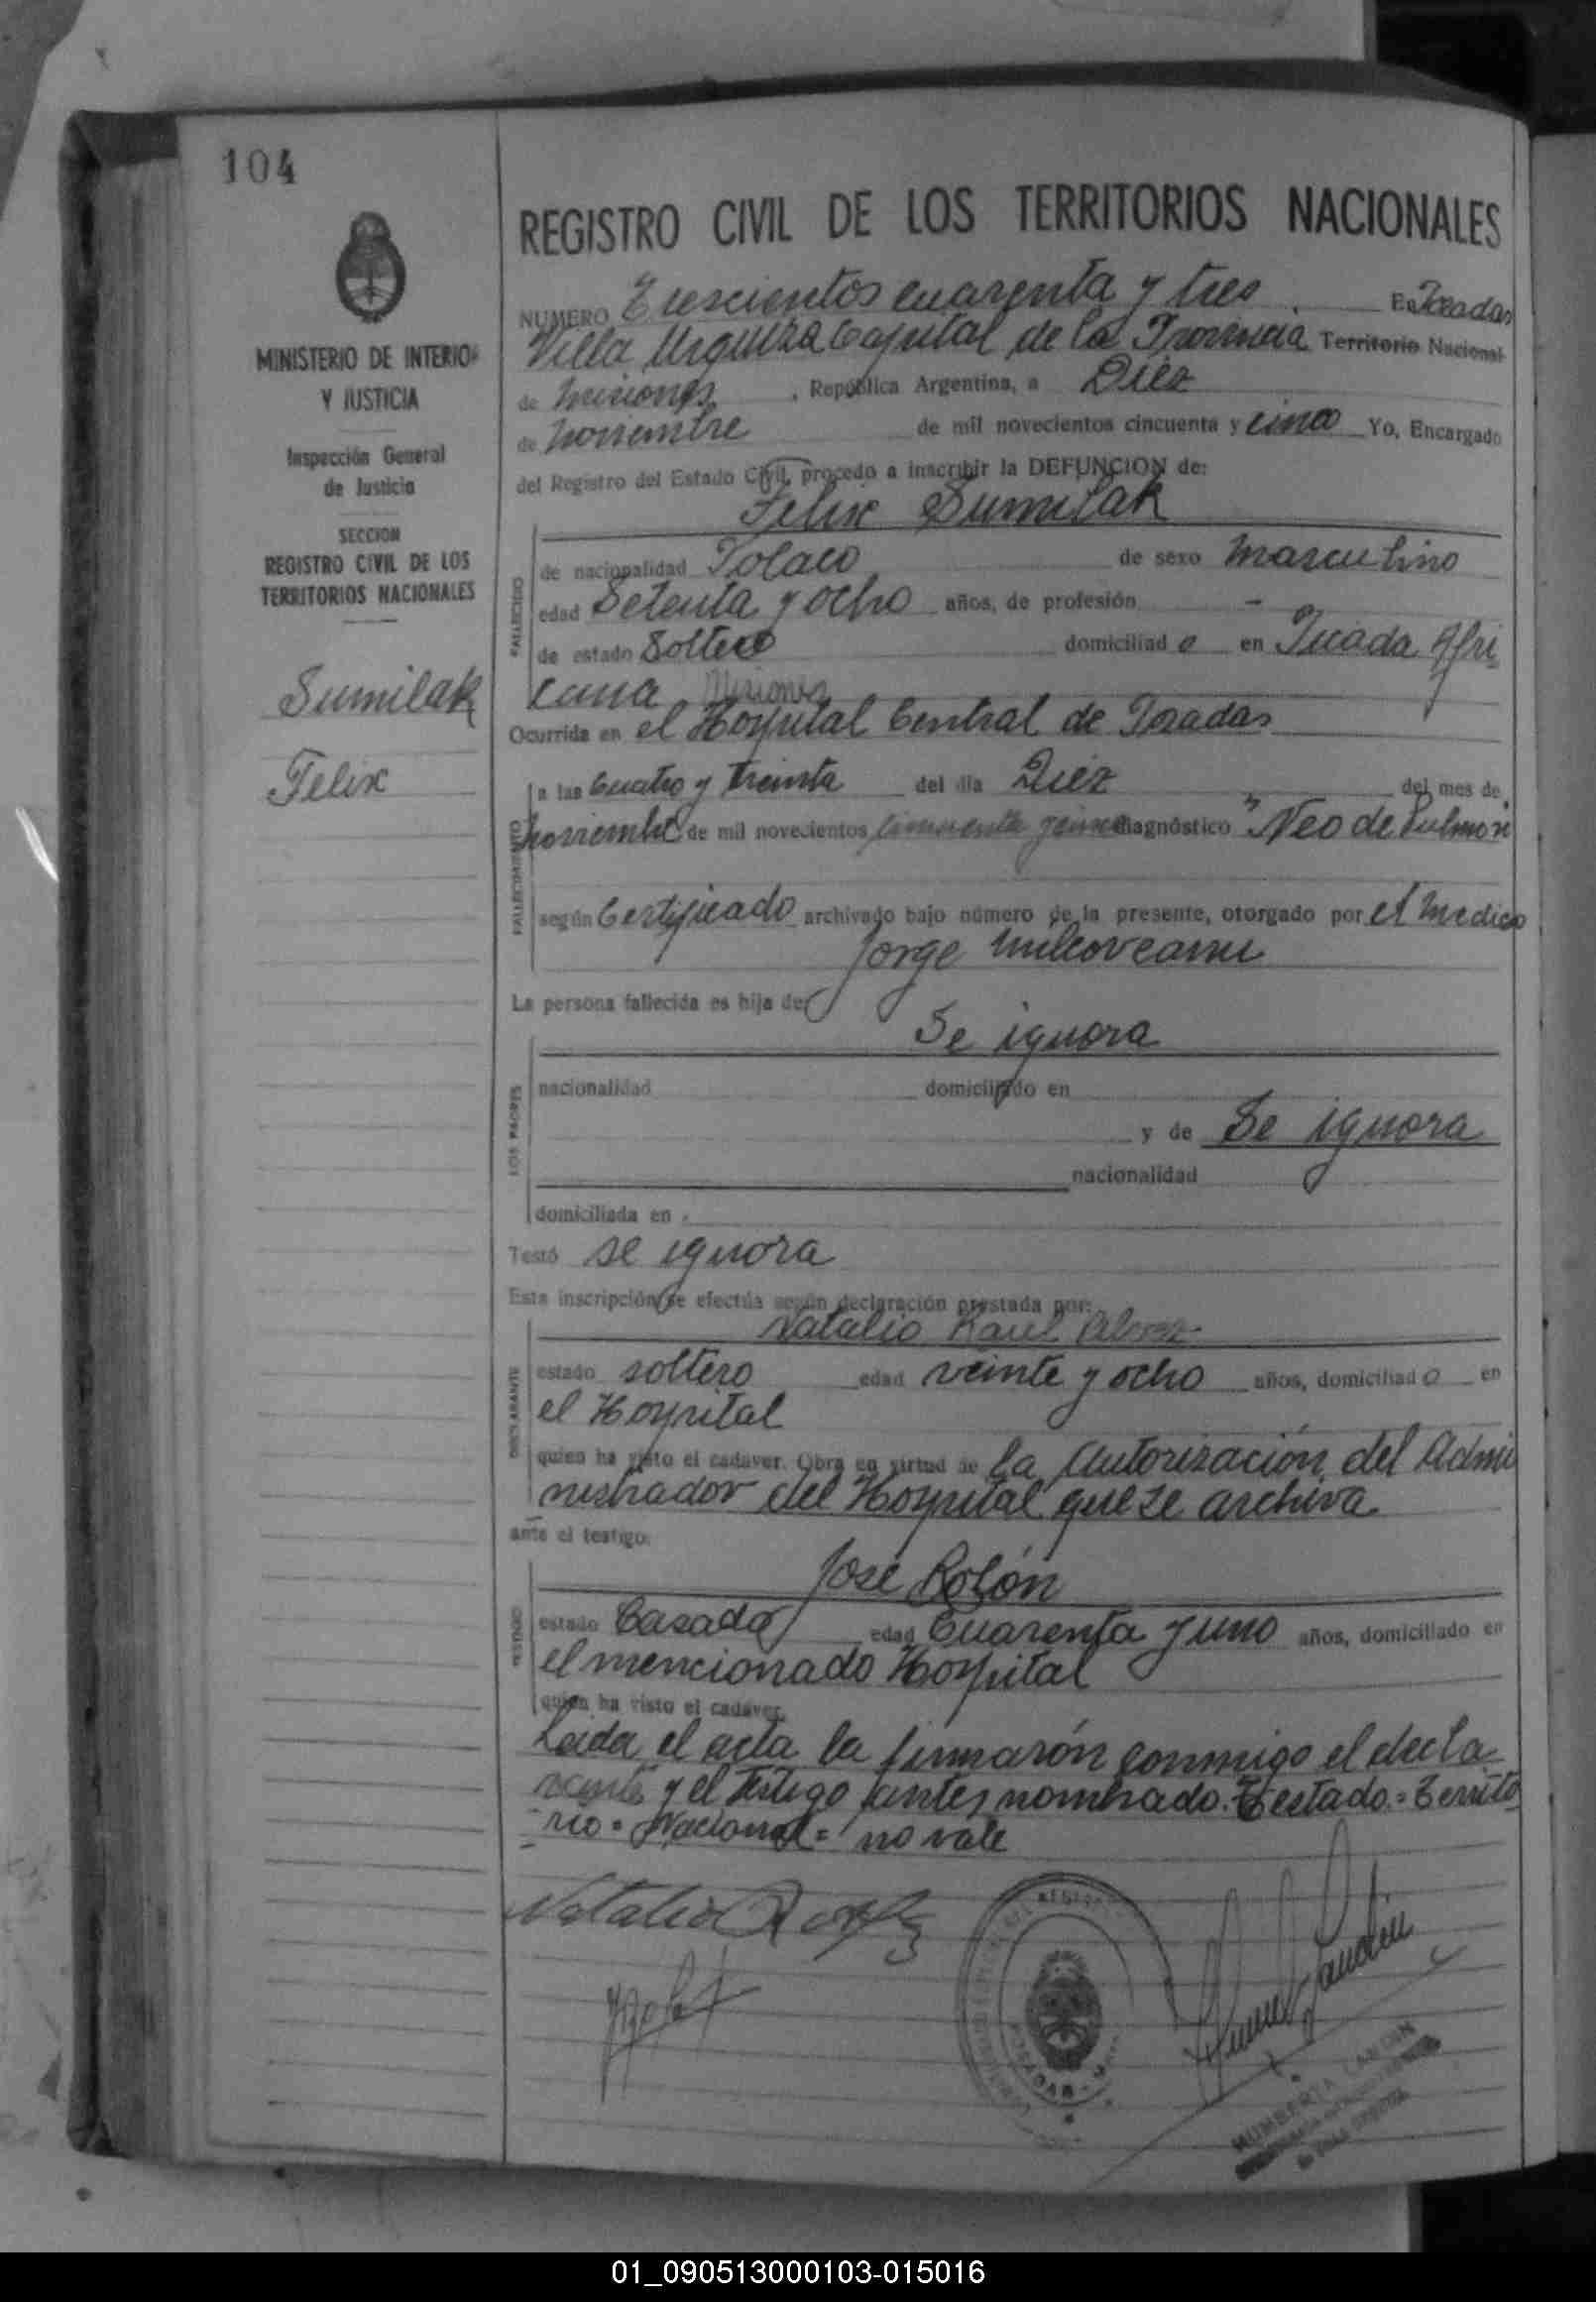 104
REGISTRO CIVIL DE LOS TERRITORIOS NACIONALES
MINISTERIO DE INTERIOR
Y JUSTICIA
Inspección General
de Justicia
SECCION
REGISTRO CIVIL DE LOS
TERRITORIOS NACIONALES
Sumilak
Felix
NUMERO Trescientos cuarenta y tres En Posadas
Villa Urquiza Capital de la Provincia Territorio Nacional
de Misiones, República Argentina, a Diéz
de noviembre de mil novecientos cincuenta y cinco Yo, Encargado
del Registro del Estado Civil, procedo a inscribir la DEFUNCION de:
Felix Sumilak
FALLECIDO
de nacionalidad Polaco de sexo masculino
edad Setenta y ocho años, de profesión -
de estado Soltero domiciliado en Picada Afri
cana Misiones
Ocurrida en el Hospital Central de Posadas
FALLECIMIENTO
a las Cuatro y treinta del dia Diéz del mes de
noviembre de mil novecientos cincuenta y cinco diagnóstico "Neo de Pulmón
según Certificado archivado bajo número de la presente, otorgado por el Medico
Jorge
La persona fallecida es hija de:
Se ignora
LOS PADRES
nacionalidad domiciliado en
y de Se ignora
nacionalidad
domiciliada en
Testó se ignora
Esta inscripción se efectúa según declaración prestada por:
Natalio Raul
DECLARANTE
estado soltero edad veinte y ocho años, domiciliado en
el Hospital
quien ha visto el cadáver. Obra en virtud de la Autorización del Admi
nistrador del Hospital que se archiva
ante el testigo:
José Rolón
TESTIGO
estado Casado edad Cuarenta y uno años, domiciliado en
el mencionado Hospital
quien ha visto el cadáver.
Leida el acta la firmarón conmigo el decla
rante y el testigo antes nombrado. Testado = Territo
rio = Nacional = no vale
Natalio R
HUMBERTA
01_090513000103-015016